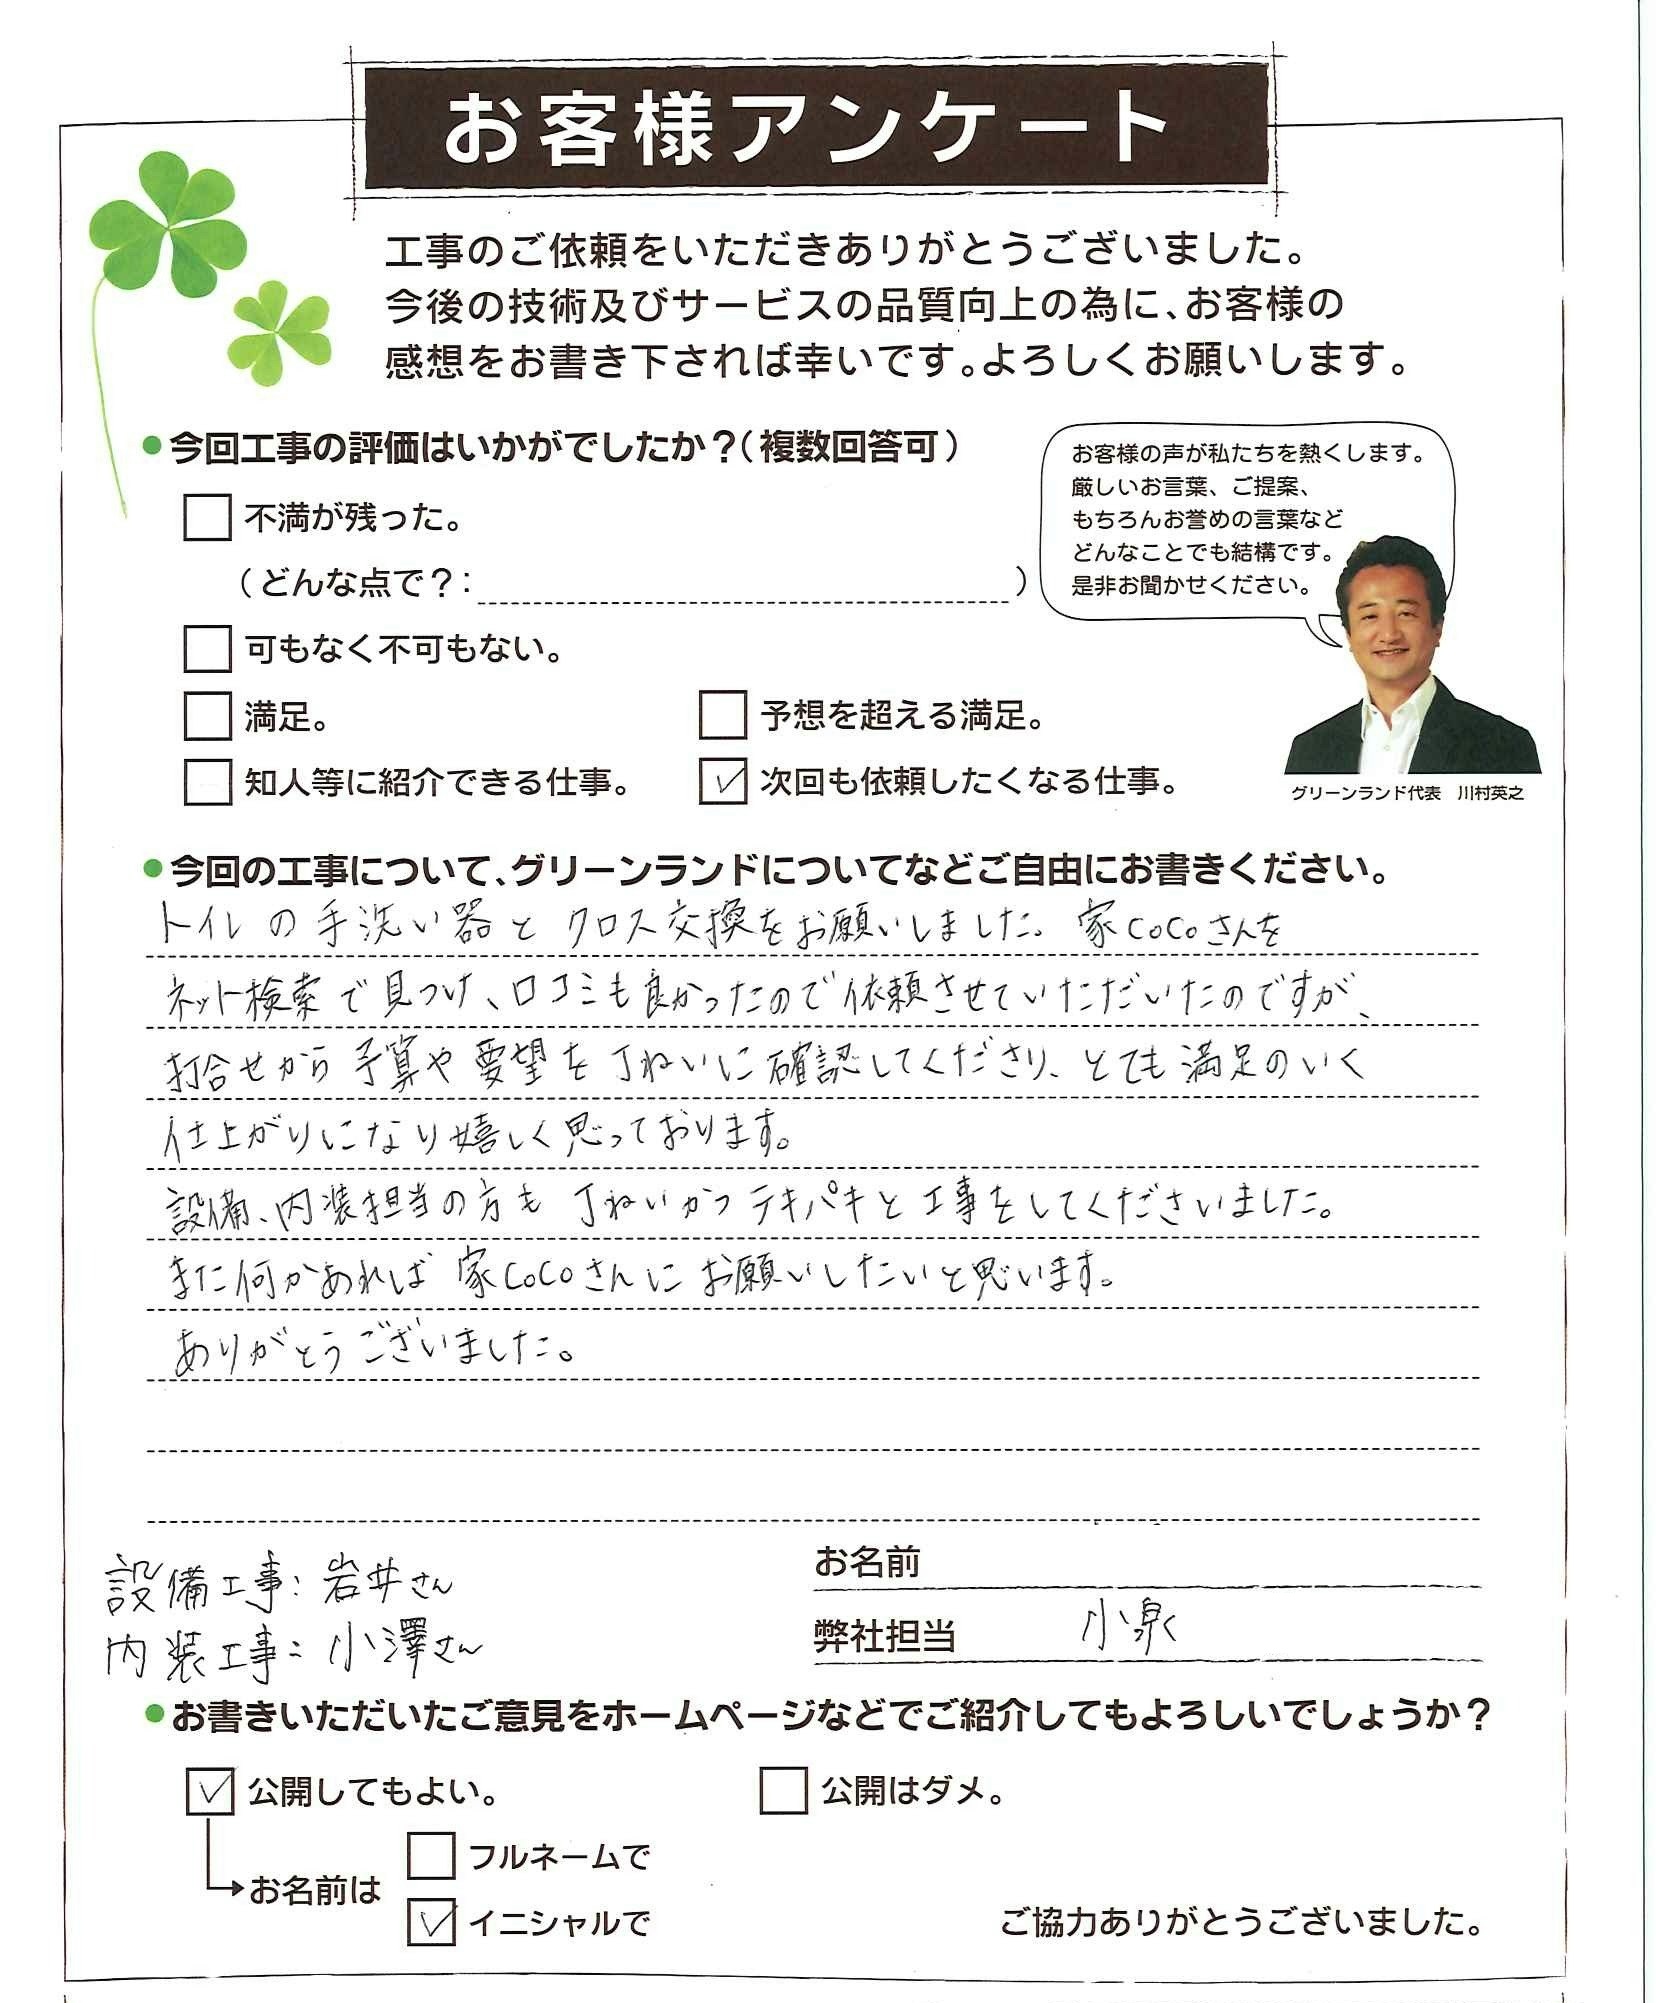 お客様アンケート
工事のご依頼をいただきありがとうございました。
今後の技術及びサービスの品質向上の為に、お客様の
感想をお書き下されば幸いです。よろしくお願いします。
●今回工事の評価はいかがでしたか？（複数回答可）
不満が残った。
（どんな点で？：）
可もなく不可もない。
満足。
予想を超える満足。
知人等に紹介できる仕事。
✓次回も依頼したくなる仕事。
お客様の声が私たちを熱くします。
厳しいお言葉、ご提案、
もちろんお誉めの言葉など
どんなことでも結構です。
是非お聞かせください。
グリーンランド代表　川村英之
●今回の工事について、グリーンランドについてなどご自由にお書きください。
トイレの手洗い器とクロス交換をお願いしました。家CoCoさんを
ネット検索で見つけ、口コミも良かったので依頼させていただいたのですが、
打合せから予算や要望を丁ねいに確認してくださり、とても満足のいく
仕上がりになり嬉しく思っております。
設備、内装担当の方も丁ねいかつテキパキと工事をしてくださいました。
また何かあれば家CoCoさんにお願いしたいと思います。
ありがとうございました。
設備工事：岩井さん
内装工事：小澤さん
お名前
弊社担当　小泉
●お書きいただいたご意見をホームページなどでご紹介してもよろしいでしょうか？
✓公開してもよい。
公開はダメ。
お名前は
フルネームで
✓イニシャルで
ご協力ありがとうございました。